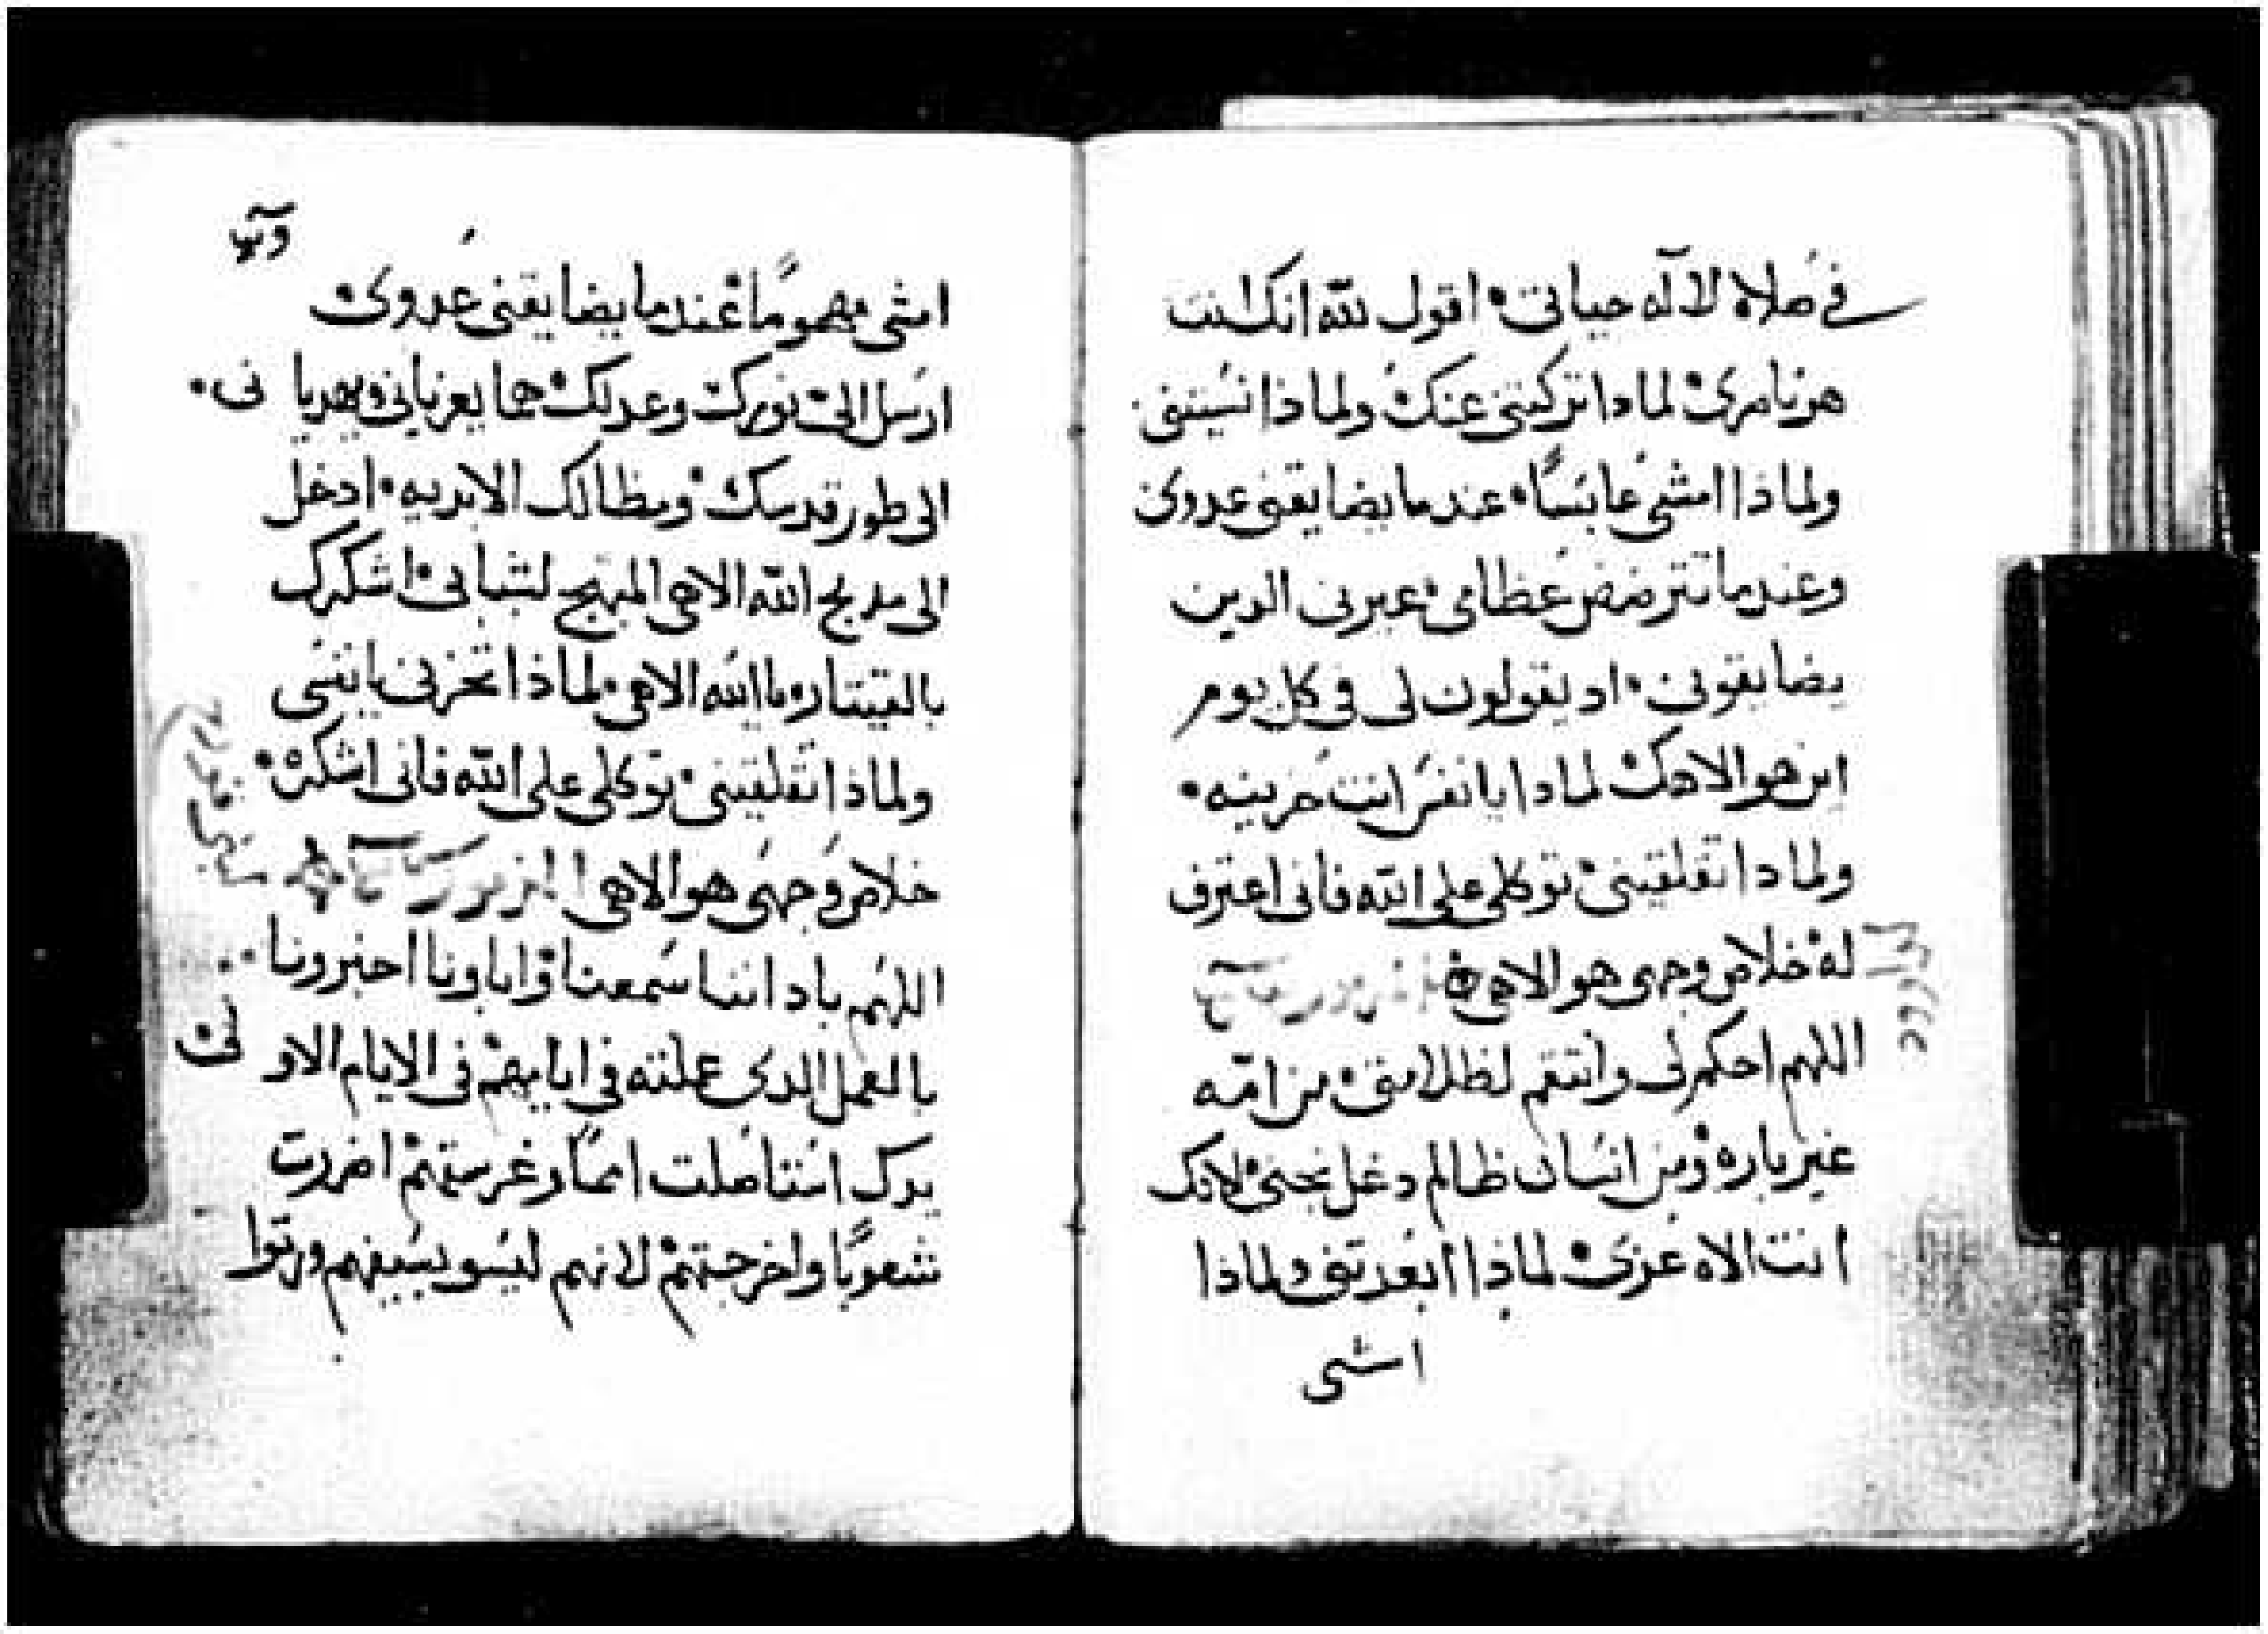 في صلاه لالآه حياتي • اقول لله انك انت
هو ناصري • لمادا تركتني عنك ولماذا نسيتني
ولماذا امشي عابسًا • عندما يضايقني عدوي
وعندما تترضض عظامي • عيرني الدين
يضايقوني • اد يقولون لي في كل يوم
اين هو الاهك • لمادا يا نفس انت حزينه •
ولمادا تقلقيني • توكلي علي الله فاني اعترف
له • خلاص وجهي هو الاهي
اللهم احكم لي وانتقم لظلامتي • من امّه
غير باره • ومن انسان ظالم دغل نجني • لانك
انت الاه عزي • لماذا ابعدتني ولماذا
امشي
امشي مهمومًا • عندما يضايقني عدوي •
ارسل الي • نورك وعدلك • هما يعزياني ويهدياني •
الى طور قدسك • ومظالك الابديه • ادخل
الى مدبح الله الاهي المبهج لشبابي • اشكرك
بالقيتاره يا الله الاهي • لماذا تحزني يا نفسي
ولماذا تقلقيني • توكلي علي الله فاني اشكره •
خلاص وجهي هو الاهي
اللهم بادا ننا سمعنا • واباونا اخبرونا •
بالعمل الدي عملته في ايامهم • في الايام الاولى •
يدك استاصلت اممًا وغرستهم • اضررت
شعوبًا واخرجتهم • لانهم ليسو بسيفهم ورتوا